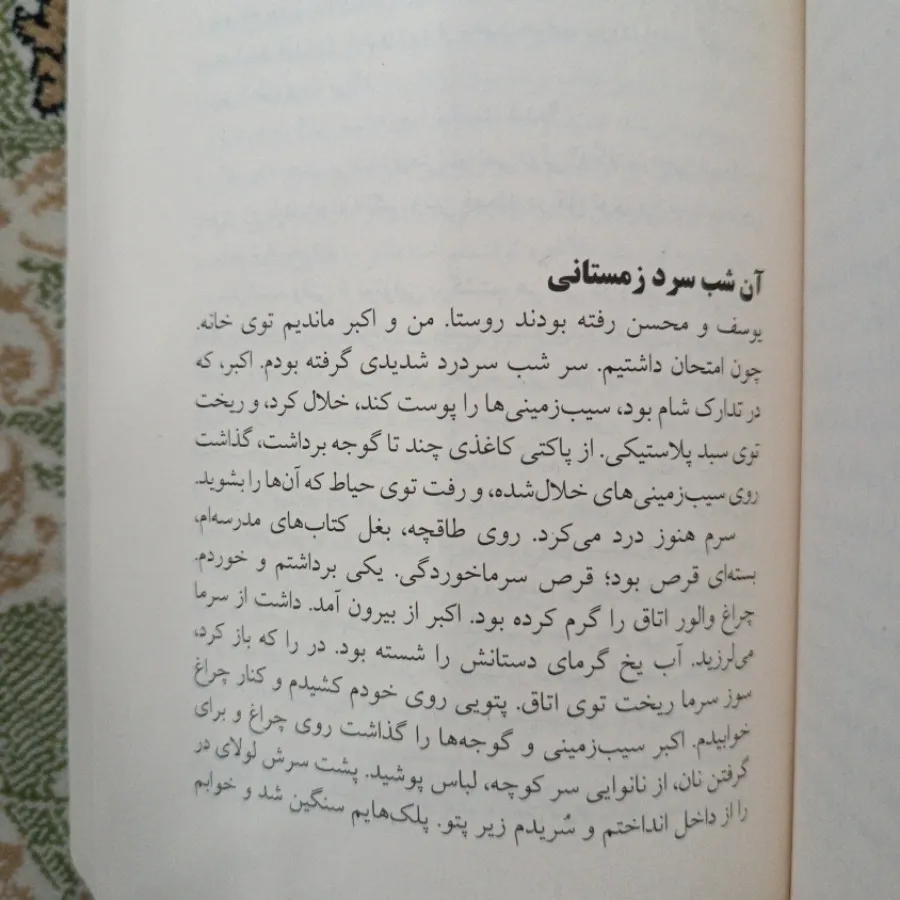 آن شب سرد زمستانی
یوسف و محسن رفته بودند روستا. من و اکبر ماندیم توی خانه.
چون امتحان داشتیم. سر شب سردرد شدیدی گرفته بودم. اکبر، که
در تدارک شام بود، سیب‌زمینی‌ها را پوست کند، خلال کرد، و ریخت
توی سبد پلاستیکی. از پاکتی کاغذی چند تا گوجه برداشت، گذاشت
روی سیب‌زمینی‌های خلال‌شده، و رفت توی حیاط که آن‌ها را بشوید.
سرم هنوز درد می‌کرد. روی طاقچه، بغل کتاب‌های مدرسه‌ام،
بسته‌ای قرص بود؛ قرص سرماخوردگی. یکی برداشتم و خوردم.
چراغ والور اتاق را گرم کرده بود. اکبر از بیرون آمد. داشت از سرما
می‌لرزید. آب یخ گرمای دستانش را شسته بود. در را که باز کرد،
سوز سرما ریخت توی اتاق. پتویی روی خودم کشیدم و کنار چراغ
خوابیدم. اکبر سیب‌زمینی و گوجه‌ها را گذاشت روی چراغ و برای
گرفتن نان، از نانوایی سر کوچه، لباس پوشید. پشت سرش لولای در
را از داخل انداختم و سُریدم زیر پتو. پلک‌هایم سنگین شد و خوابم